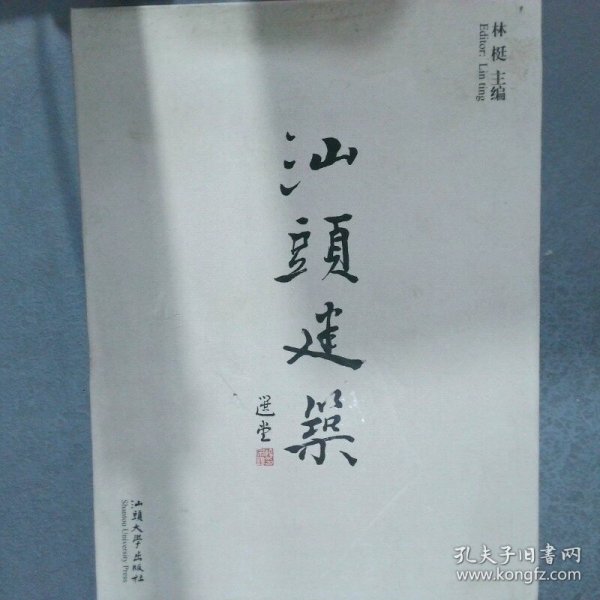 林 梃 主编
Editor: Lin ting
汕頭建築
選堂
汕頭大學出版社
Shantou University Press
孔夫子旧书网
www.kongfz.com